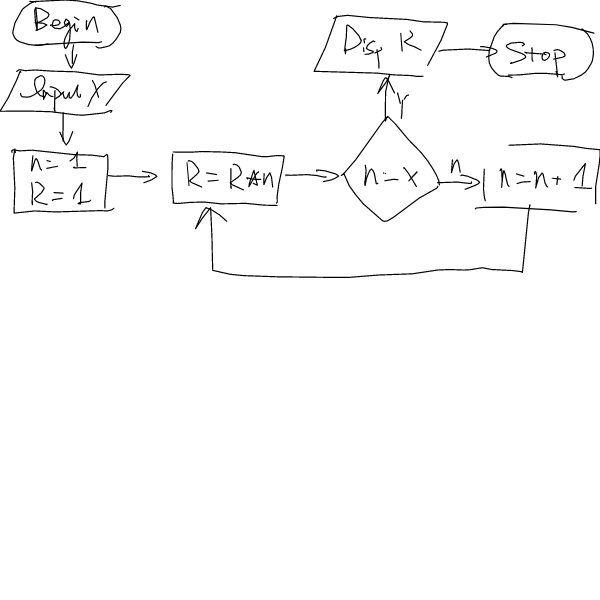 Begin
Input X
n=1
R=1
R=R*n
n=x
Y
Disp R
Stop
n
n=n+1